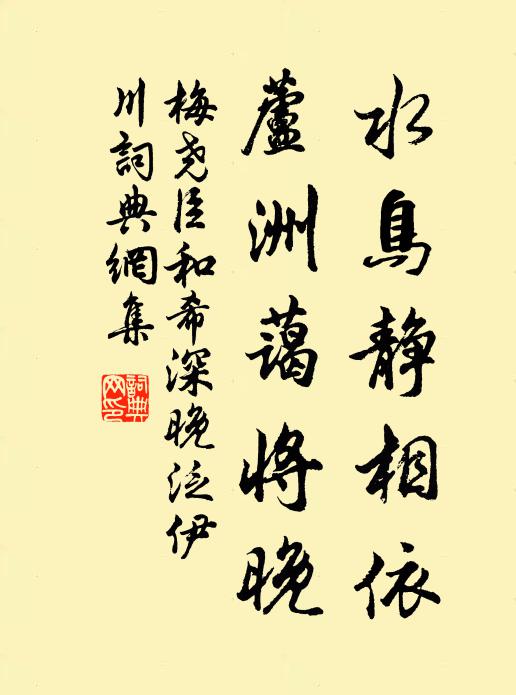 水鳥靜相依
蘆洲藹將晚
梅尧臣和希深晚泛伊
川詞典網集
詞典
网印